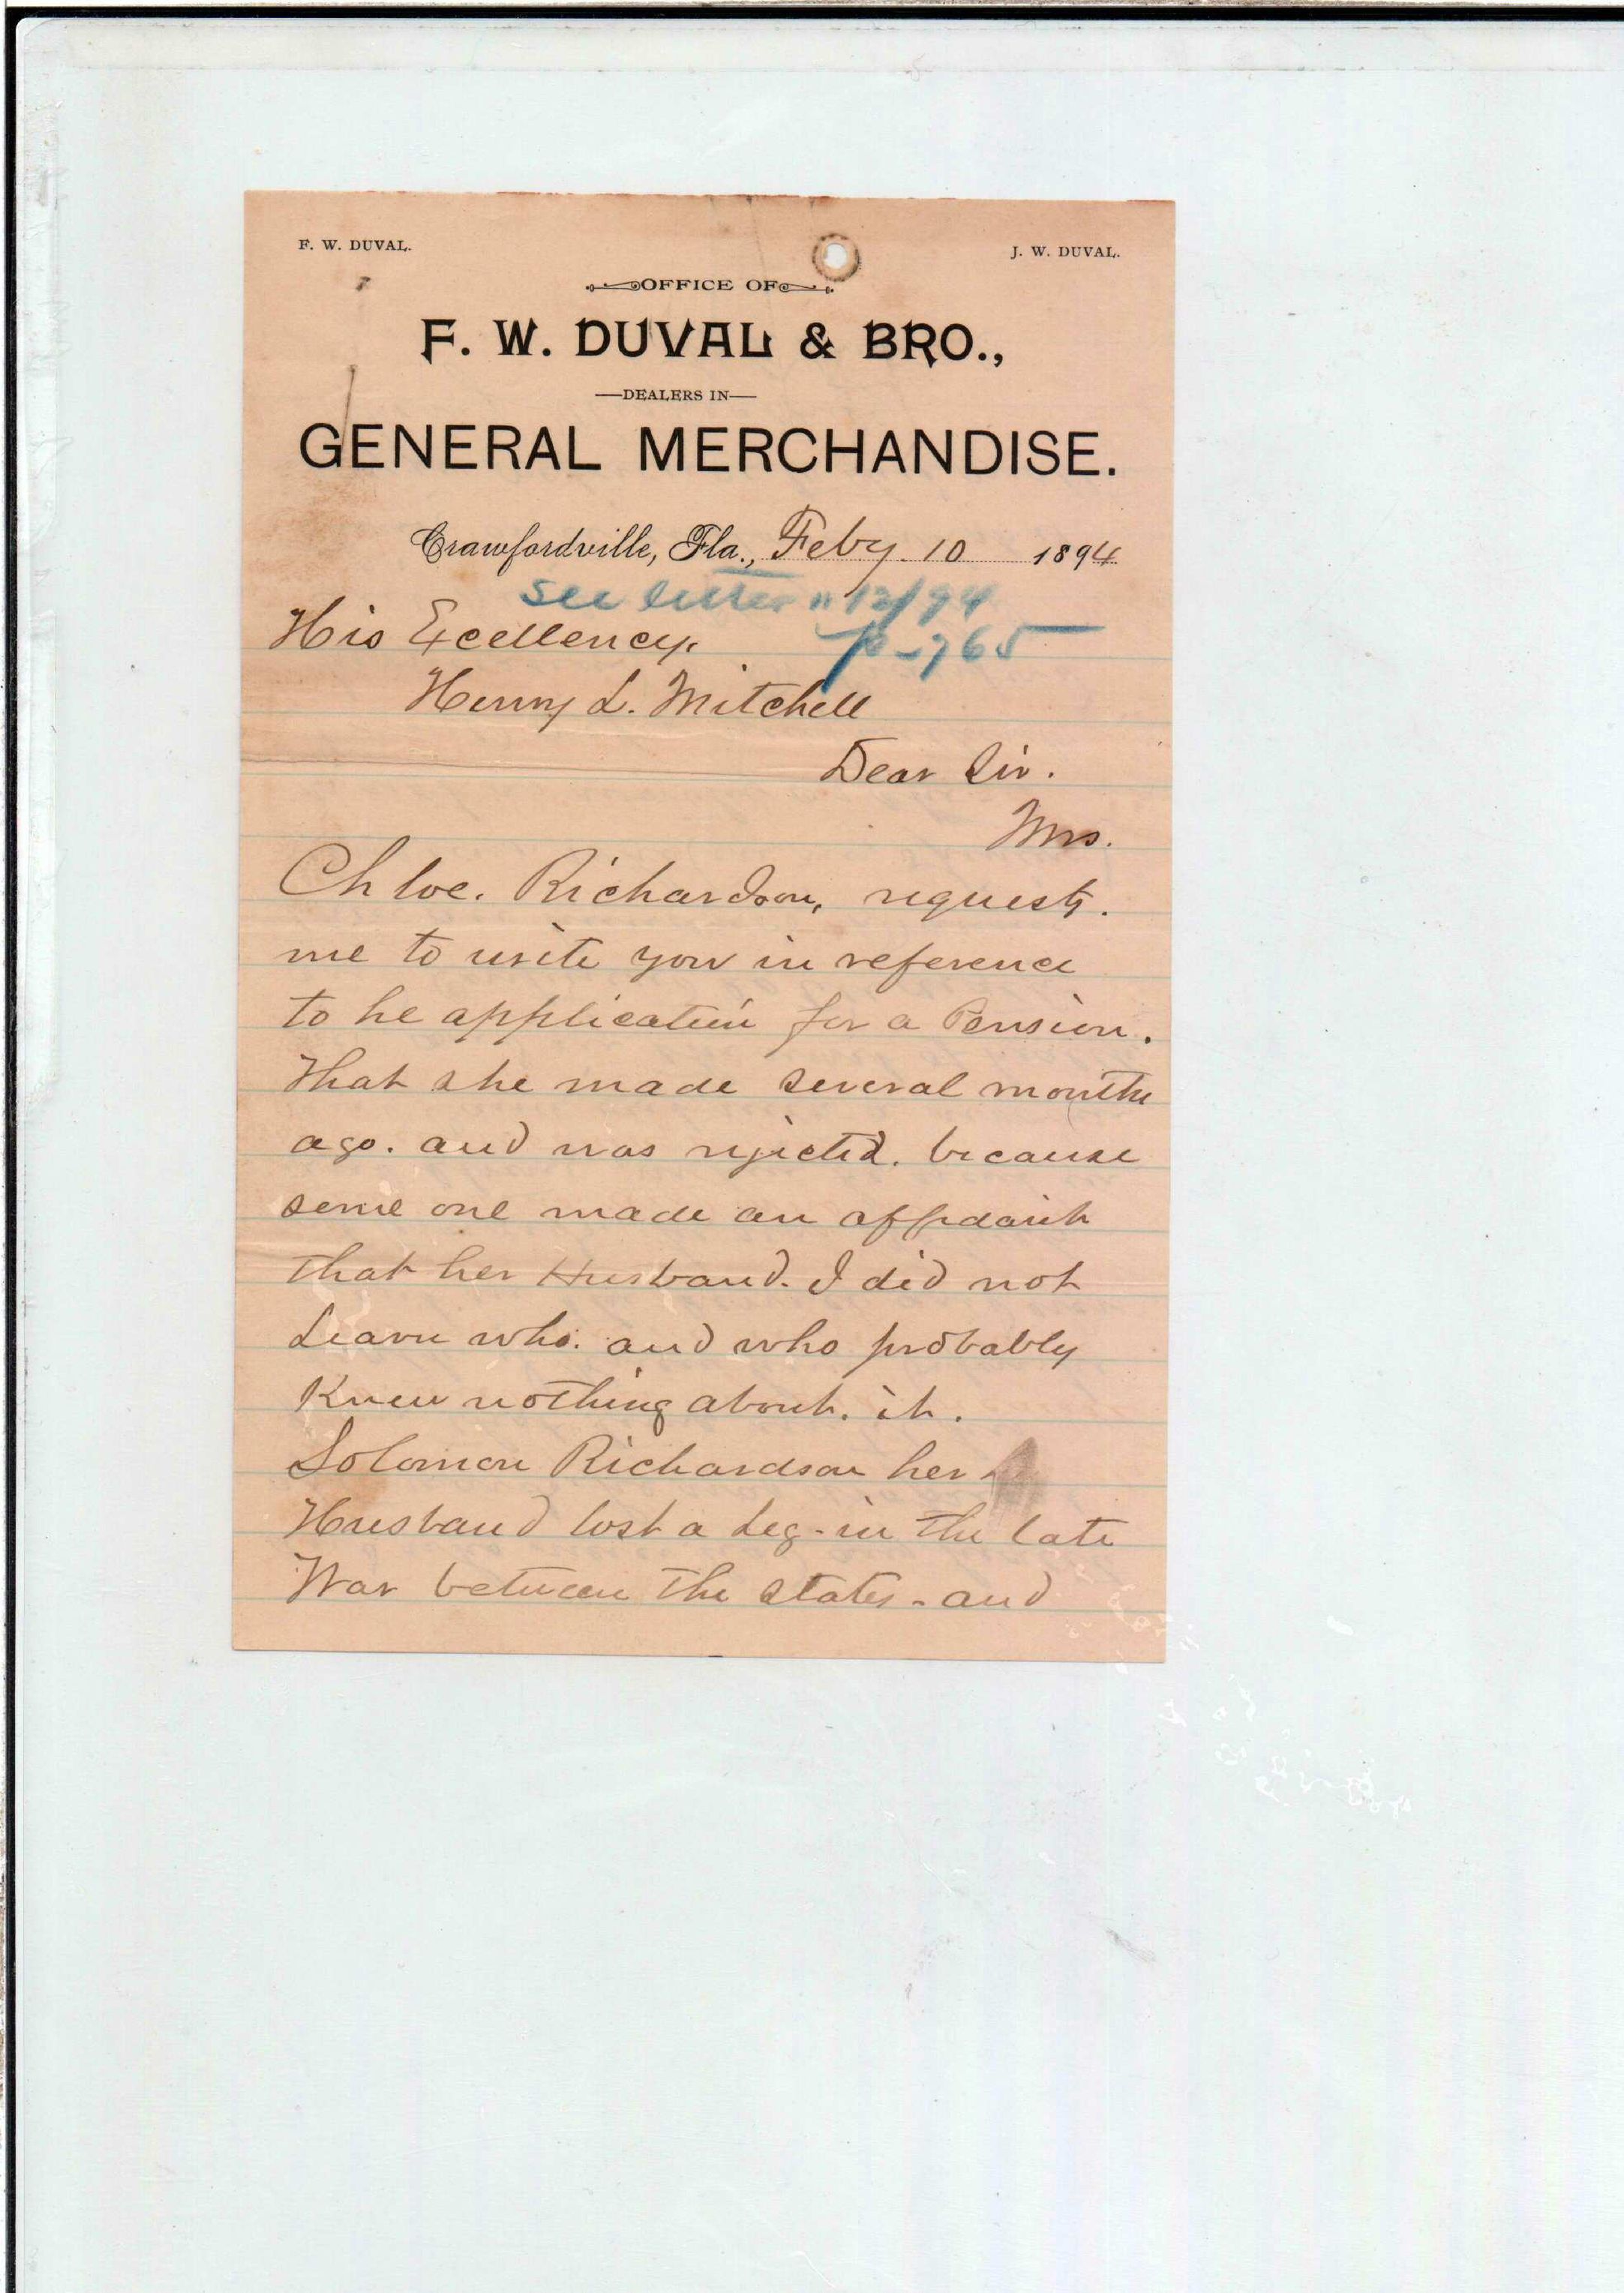 F. W. DUVAL.
J. W. DUVAL.
OFFICE OF
F. W. DUVAL & BRO.,
—DEALERS IN—
GENERAL MERCHANDISE.
Crawfordville, Fla., Feby. 10 1894
See letter " 12/94
p-765
His Excellency.
Henry L. Mitchell
Dear Sir.
Mrs.
Chloe. Richardson, requests.
me to write you in reference
to he application for a Pension.
That she made several months
ago. and was rejected. because
some one made an affidavit
that her Husband. I did not
Learn who. and who probably
Knew nothing about. it.
Solomon Richardson her
Husband lost a Leg - in the late
War between the States - and